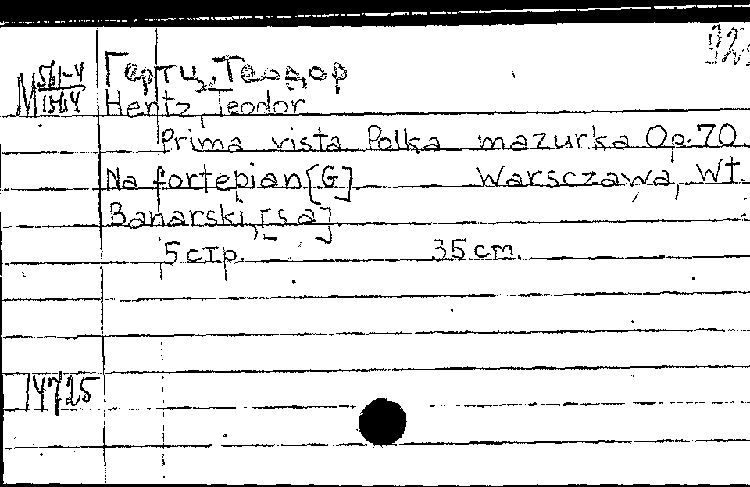 92
М 561-4 Герту, Теодор
1564 Hentz, Teodor
Prima vista Polka mazurka Op. 70
Na fortepian [G] Warsczawa, Wt.
Banarski, [s.a]
5 стр. 35 cm.
14725